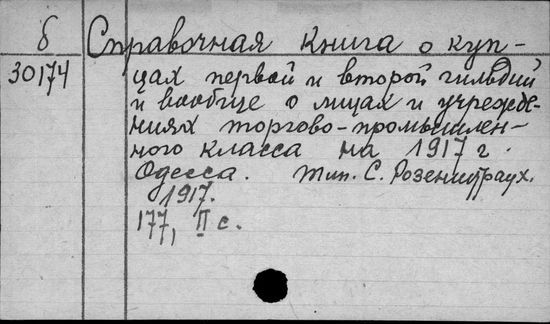 б Справочная книга о куп-
30174 цах первой и второй гильдий
и вообще о лицах и учрежде-
ниях торгово-промышлен-
ного класса на 1917 г.
Одесса. Тип. С. Розенштраух.
1917.
177, II с.